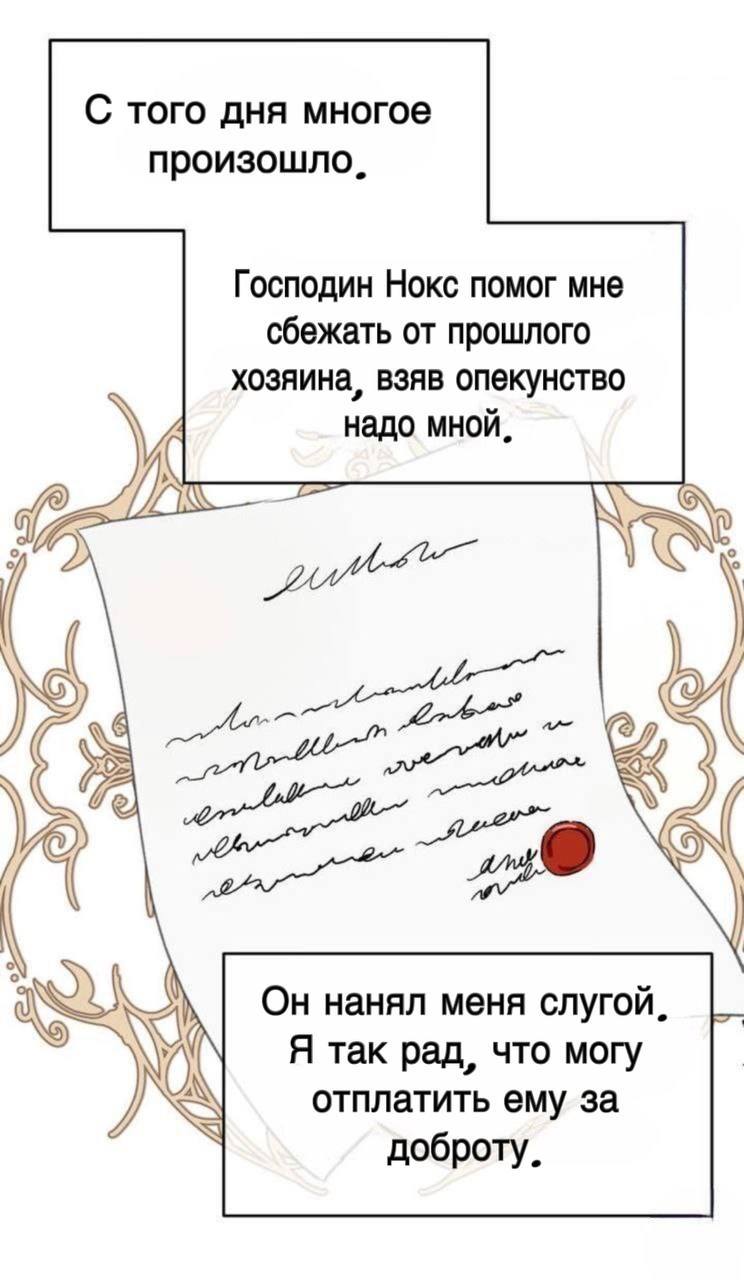 С того дня многое
произошло.
Господин Нокс помог мне
сбежать от прошлого
хозяина, взяв опекунство
надо мной.
Он нанял меня слугой.
Я так рад, что могу
отплатить ему за
доброту.